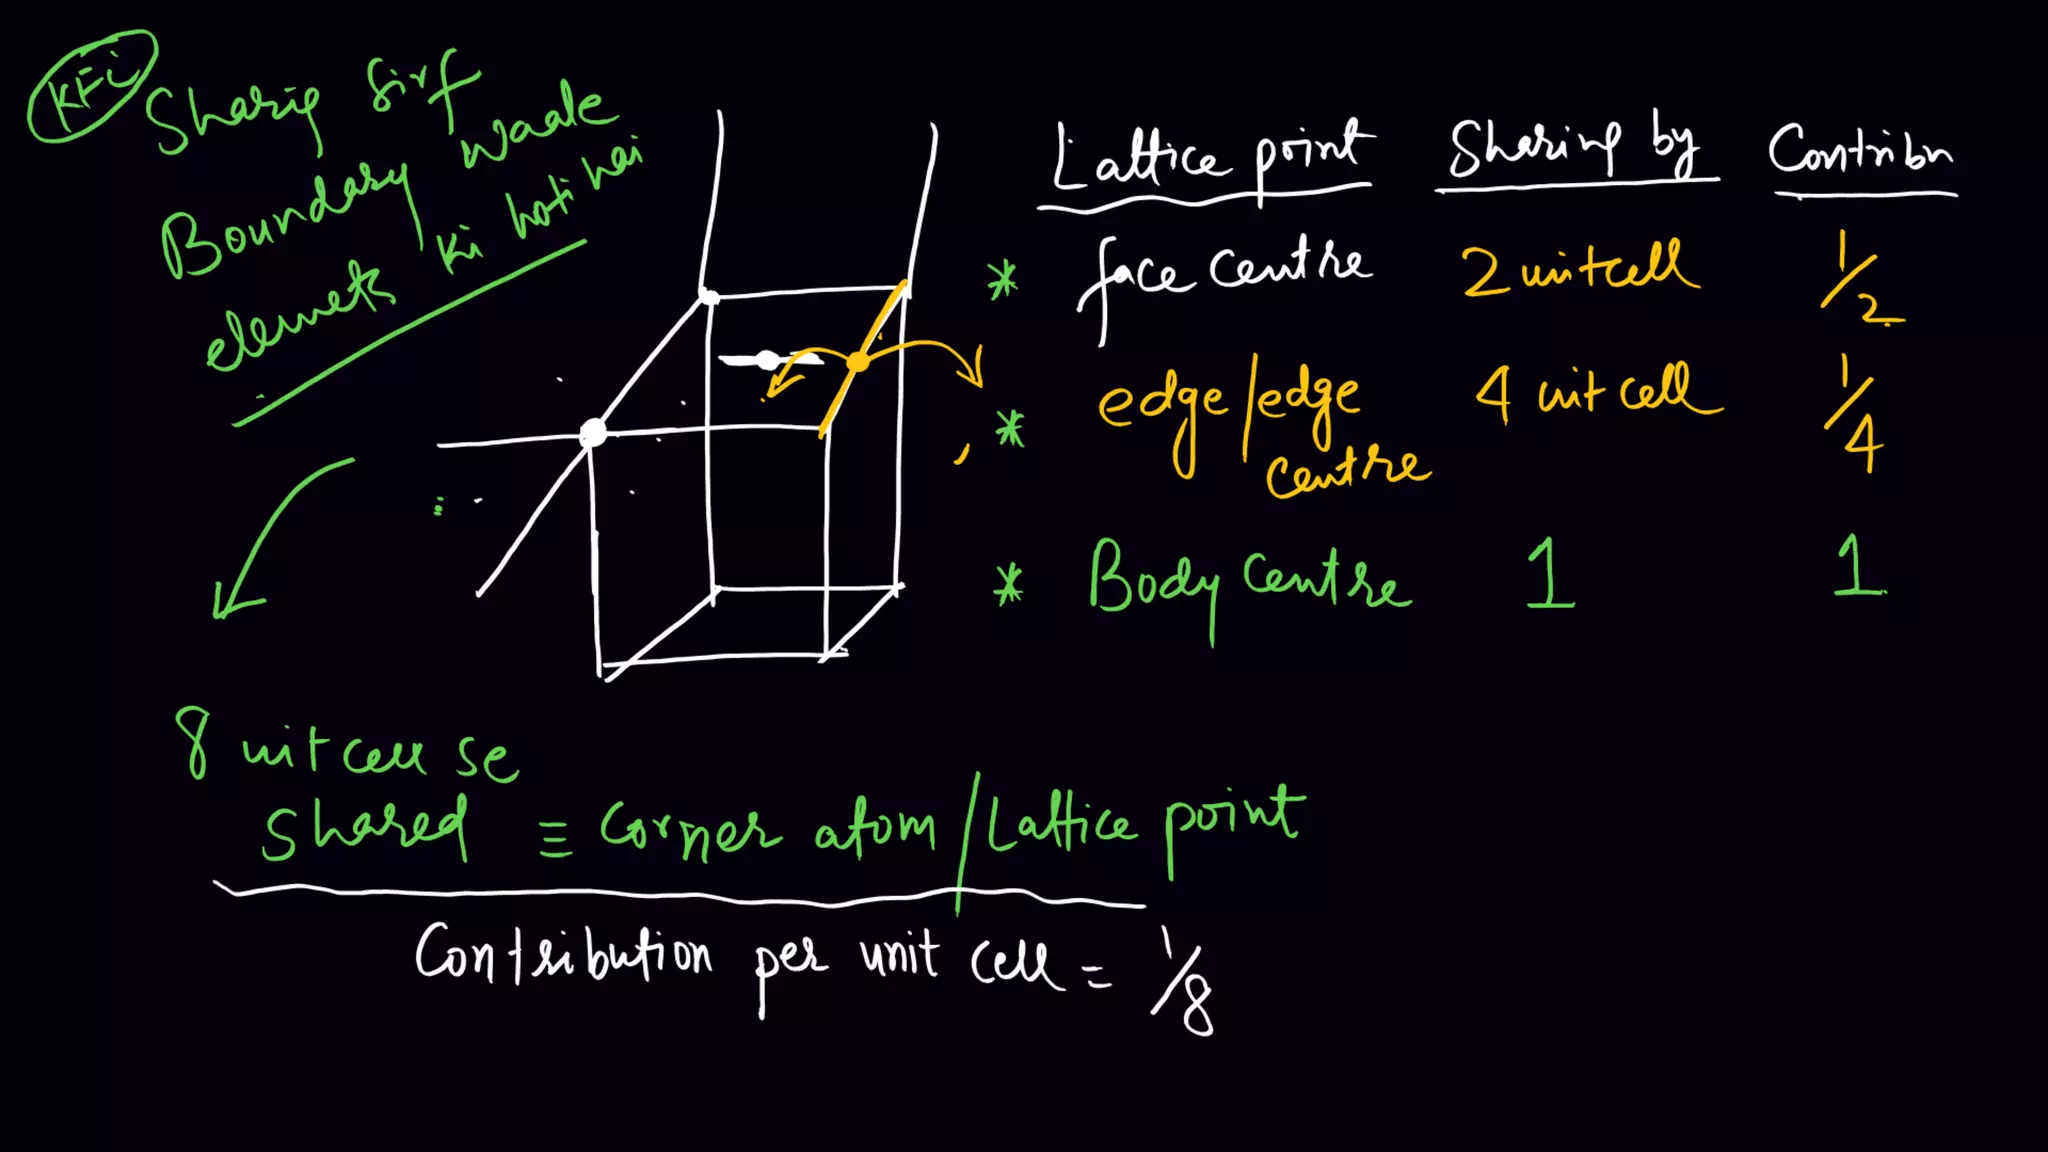 KFC
Sharing Sirf
Boundary waale
elements ki hoti hai
Lattice point Sharing by Contribn
* face centre 2 unit cell 1/2
* edge/edge centre 4 unit cell 1/4
* Body Centre 1 1
8 unit cell se
shared ≡ corner atom/Lattice point
Contribution per unit cell = 1/8